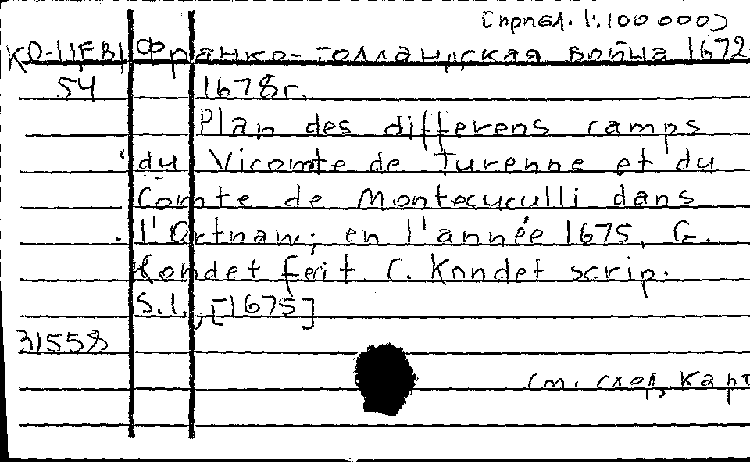 [предл. 1:100 000]
КО-Ц,FВ, Франко-голландская война 1672-
54 1678г.
Plan des differens camps
du Vicomte de Turenne et du
Comte de Montecuculli dans
l'Ortnau; en l'année 1675, G.
Kondet ferit. C. Kondet scrip.
S.l., [1675]
31558
см. след. карт